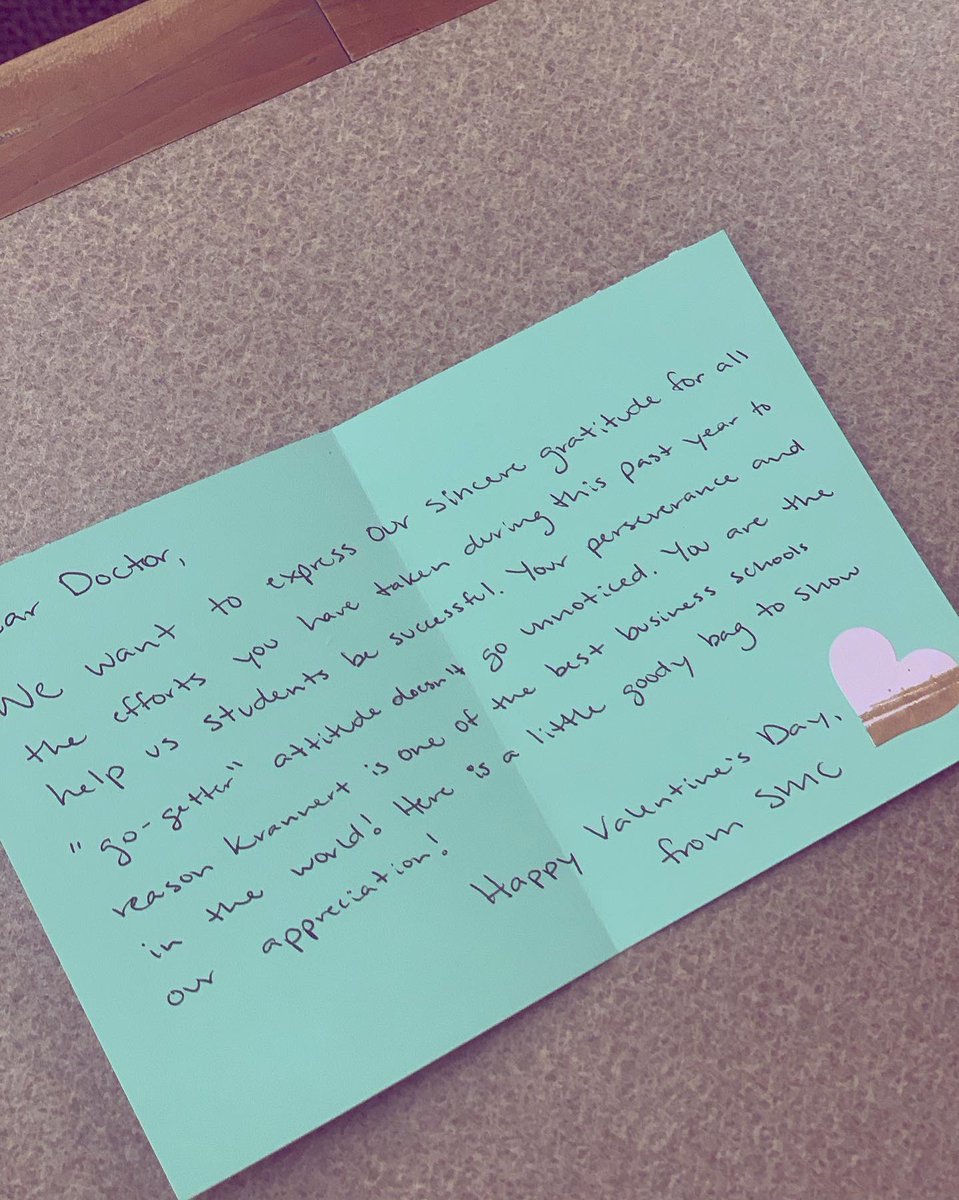 ear Doctor,
We want to express our sincere gratitude for all
the efforts you have taken during this past year to
help us students be successful. Your perseverance and
"go-getter" attitude doesn't go unnoticed. You are the
reason Krannert is one of the best business schools
in the world! Here is a little goody bag to show
our appreciation!
Happy Valentine's Day,
from SMC